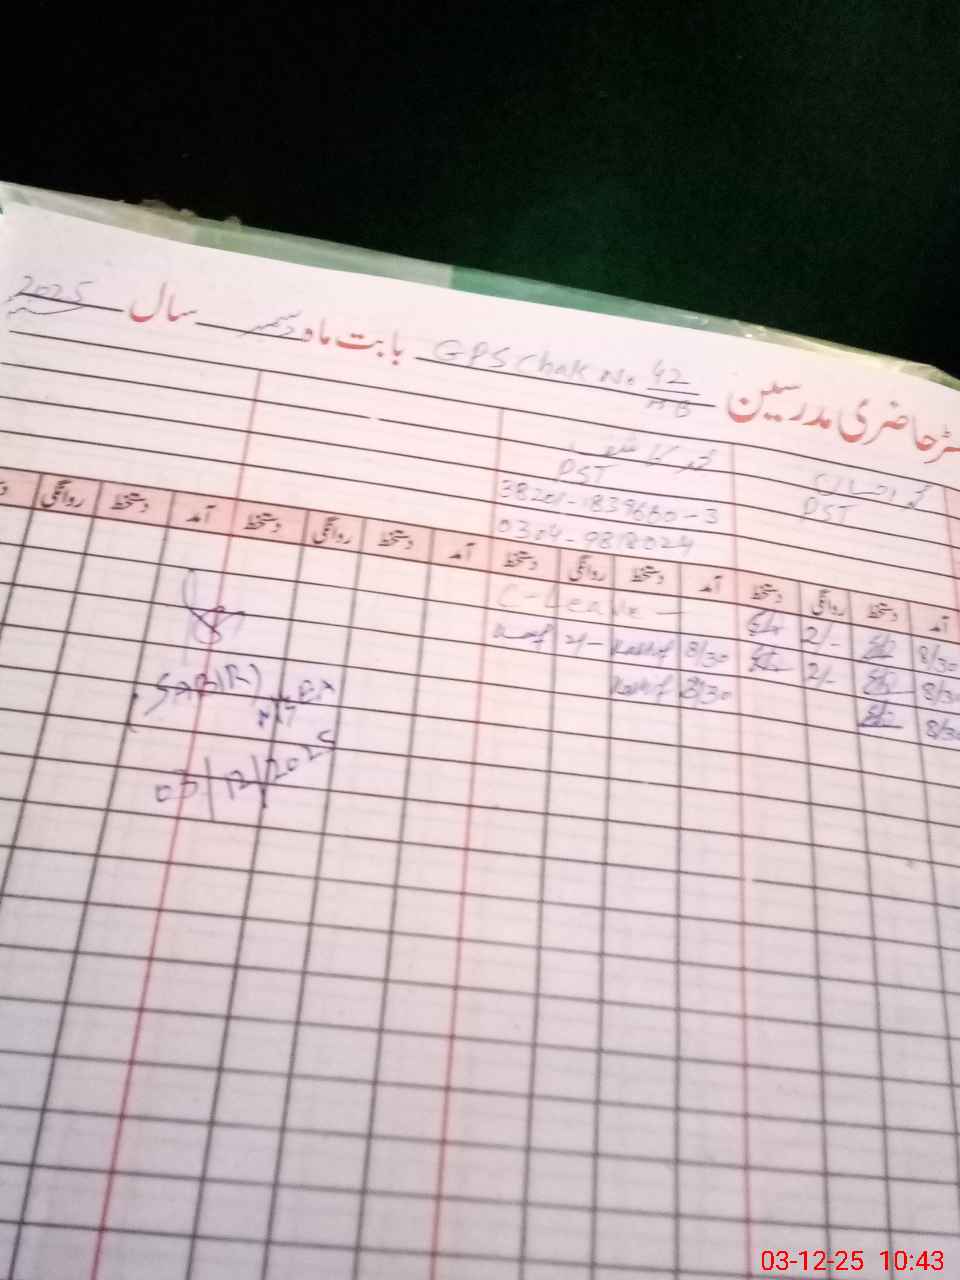 رجسٹر حاضری مدرسین GPS Chak No. 42/MB بابت ماہ دسمبر سال 2025
محمد کاشف
PST PST
38201-1839660-3
0304-9818024
آمد دستخط روانگی دستخط آمد دستخط روانگی دستخط آمد دستخط روانگی دستخط آمد دستخط روانگی
8/30 2/- C-Leave -
8/30 2/- 8/30 Kashif 2/- Kashif
8/30 8/30 Kashif
SABIR
03/12/2025
03-12-25 10:43